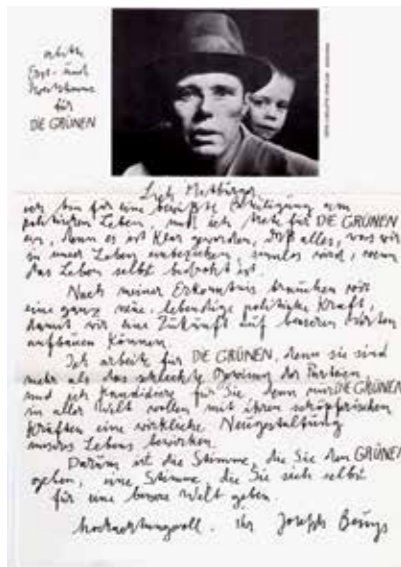 bitte
Erst- und
Zweitstimme
für
DIE GRÜNEN
Liebe Mitbürger,
ich bin für eine bewußte Beteiligung am
politischen Leben und ich trete für DIE GRÜNEN
ein, denn es ist klar geworden, daß alles, was wir
in unser Leben einbeziehen, sinnlos wird, wenn
das Leben selbst bedroht ist.
Nach meiner Erkenntnis brauchen wir
eine ganz neue, lebendige politische Kraft,
damit wir eine Zukunft auf besseren Werten
aufbauen können.
Ich arbeite für DIE GRÜNEN, denn sie sind
mehr als das schlechte Gewissen der Parteien
und ich kandidiere für Sie, denn nur DIE GRÜNEN
in aller Welt wollen mit ihren schöpferischen
Kräften eine wirkliche Neugestaltung
unseres Lebens bewirken.
Darum ist die Stimme, die Sie den GRÜNEN
geben, eine Stimme, die Sie sich selbst
für eine bessere Welt geben.
Hochachtungsvoll, Ihr Joseph Beuys